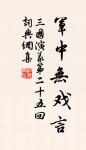 軍中無戏言
三國演義第二十五回
詞典網集